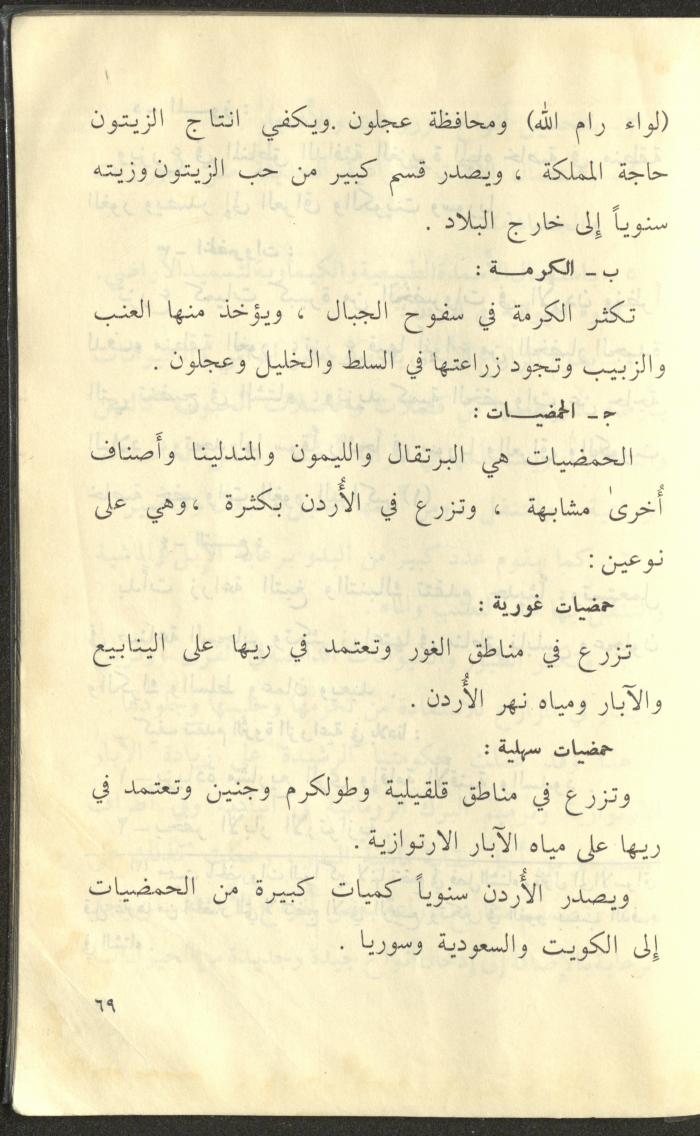 (لواء رام الله) ومحافظة عجلون .ويكفي انتاج الزيتون
حاجة المملكة ، ويصدر قسم كبير من حب الزيتون وزيته
سنوياً إِلى خارج البلاد .
ب ـ الكرمـــة :
تكثر الكرمة في سفوح الجبال ، ويؤخذ منها العنب
والزبيب وتجود زراعتها في السلط والخليل وعجلون .
جـ ـ الحمضيـــات :
الحمضيات هي البرتقال والليمون والمندلينا وأَصناف
أُخرىٰ مشابهة ، وتزرع في الأُردن بكثرة ،وهي على
نوعين :
حمضيات غورية :
تزرع في مناطق الغور وتعتمد في ريها على الينابيع
والآبار ومياه نهر الأُردن .
حمضيات سهلية :
وتزرع في مناطق قلقيلية وطولكرم وجنين وتعتمد في
ريها على مياه الآبار الارتوازية .
ويصدر الأُردن سنوياً كميات كبيرة من الحمضيات
إِلى الكويت والسعودية وسوريا .
٦٩